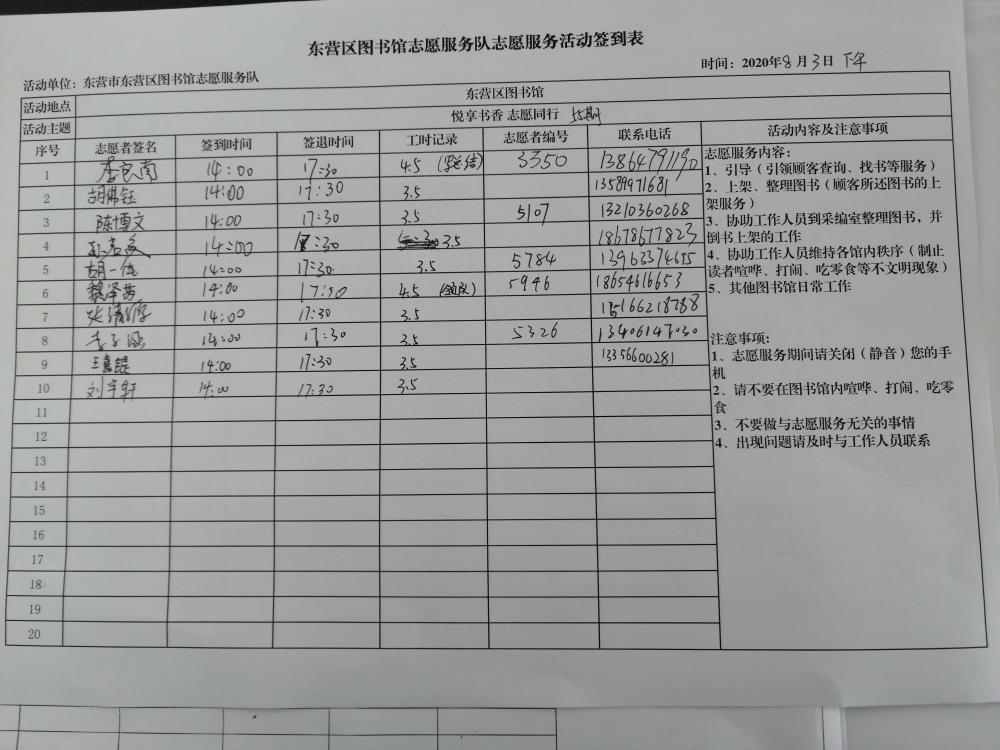 东营区图书馆志愿服务队志愿服务活动签到表
活动单位：东营市东营区图书馆志愿服务队
时间：2020年8月3日 下午
活动地点 东营区图书馆
活动主题 悦享书香 志愿同行 55期
序号 志愿者签名 签到时间 签退时间 工时记录 志愿者编号 联系电话 活动内容及注意事项
1 14:00 17:30 4.5 3350
2 胡佛钰 14:00 17:30 3.5 13589971681
3 陈博文 14:00 17:30 3.5 5107 13210360268
4 14:00 17:30 3.5 18678677823
5 胡一佳 14:00 17:30. 3.5 5784
6 魏泽茜 14:00 17:30 4.5 5946 18654616653
7 14:00 17:30 3.5
8 李子涵 14:00 17:30 3.5 5326 13406147030
9 14:00 17:30 3.5 13356600281
10 刘宇轩 14:00 17:30 3.5
11
12
13
14
15
16
17
18
19
20
志愿服务内容：
1、引导（引领顾客查询、找书等服务）
2、上架、整理图书（顾客所还图书的上
架服务）
3、协助工作人员到采编室整理图书，并
倒书上架的工作
4、协助工作人员维持各馆内秩序（制止
读者喧哗、打闹、吃零食等不文明现象）
5、其他图书馆日常工作
注意事项：
1、志愿服务期间请关闭（静音）您的手
机
2、请不要在图书馆内喧哗、打闹、吃零
食
3、不要做与志愿服务无关的事情
4、出现问题请及时与工作人员联系